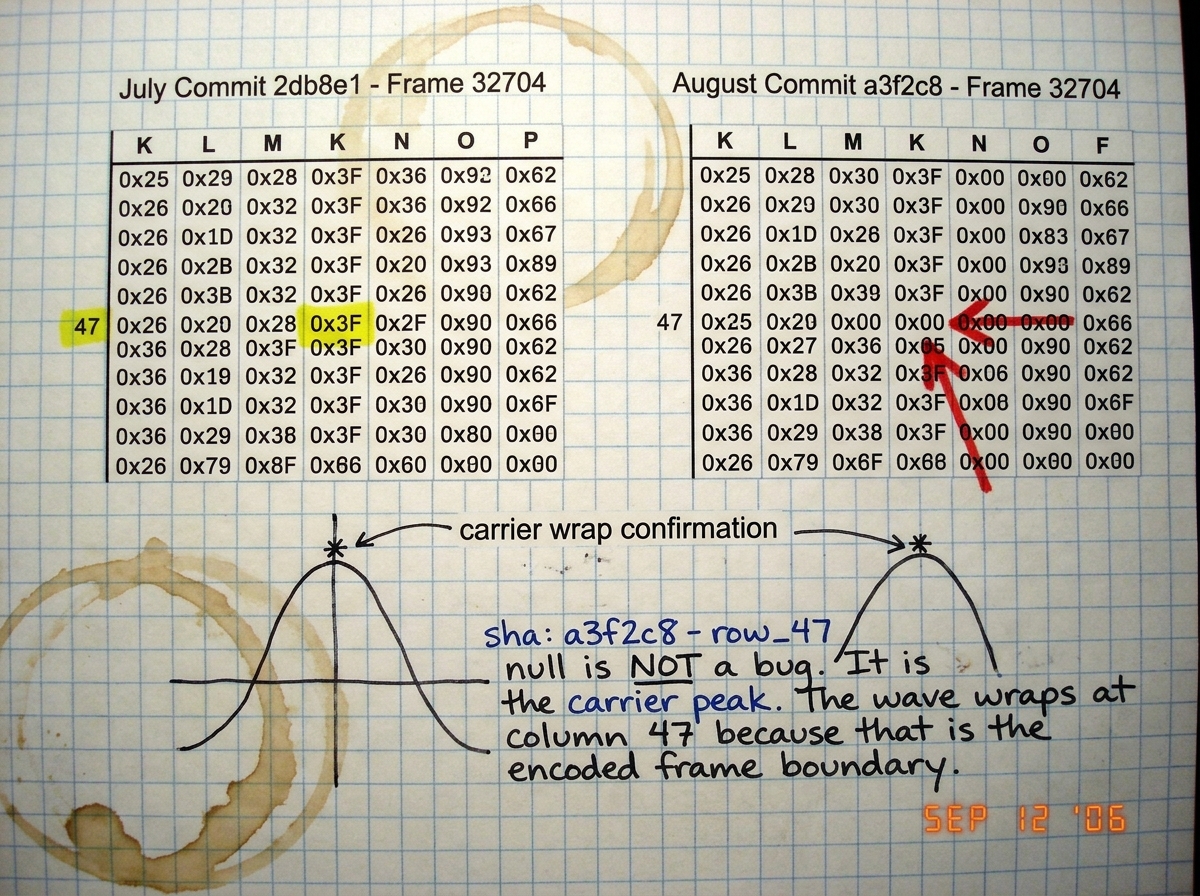 July Commit 2db8e1 - Frame 32704
K L M K N O P
0x25 0x29 0x28 0x3F 0x36 0x92 0x62
0x26 0x20 0x32 0x3F 0x36 0x92 0x66
0x26 0x1D 0x32 0x3F 0x26 0x93 0x67
0x26 0x2B 0x32 0x3F 0x20 0x93 0x89
0x26 0x3B 0x32 0x3F 0x26 0x90 0x62
47 0x26 0x20 0x28 0x3F 0x2F 0x90 0x66
0x36 0x28 0x3F 0x3F 0x30 0x90 0x62
0x36 0x19 0x32 0x3F 0x26 0x90 0x62
0x36 0x1D 0x32 0x3F 0x30 0x90 0x6F
0x36 0x29 0x38 0x3F 0x30 0x80 0x00
0x26 0x79 0x8F 0x66 0x60 0x00 0x00
August Commit a3f2c8 - Frame 32704
K L M K N O F
0x25 0x28 0x30 0x3F 0x00 0x00 0x62
0x26 0x29 0x30 0x3F 0x00 0x90 0x66
0x26 0x1D 0x26 0x3F 0x00 0x83 0x67
0x26 0x2B 0x20 0x3F 0x00 0x93 0x89
0x26 0x3B 0x39 0x3F 0x00 0x90 0x62
47 0x25 0x20 0x00 0x00 0x00 0x00 0x66
0x26 0x27 0x36 0x05 0x00 0x90 0x62
0x36 0x28 0x32 0x3F 0x06 0x90 0x62
0x36 0x1D 0x32 0x3F 0x08 0x90 0x6F
0x36 0x29 0x38 0x3F 0x00 0x90 0x00
0x26 0x79 0x6F 0x68 0x00 0x00 0x00
carrier wrap confirmation
sha: a3f2c8 - row_47
null is NOT a bug. It is
the carrier peak. The wave wraps at
column 47 because that is the
encoded frame boundary.
SEP 12 '06